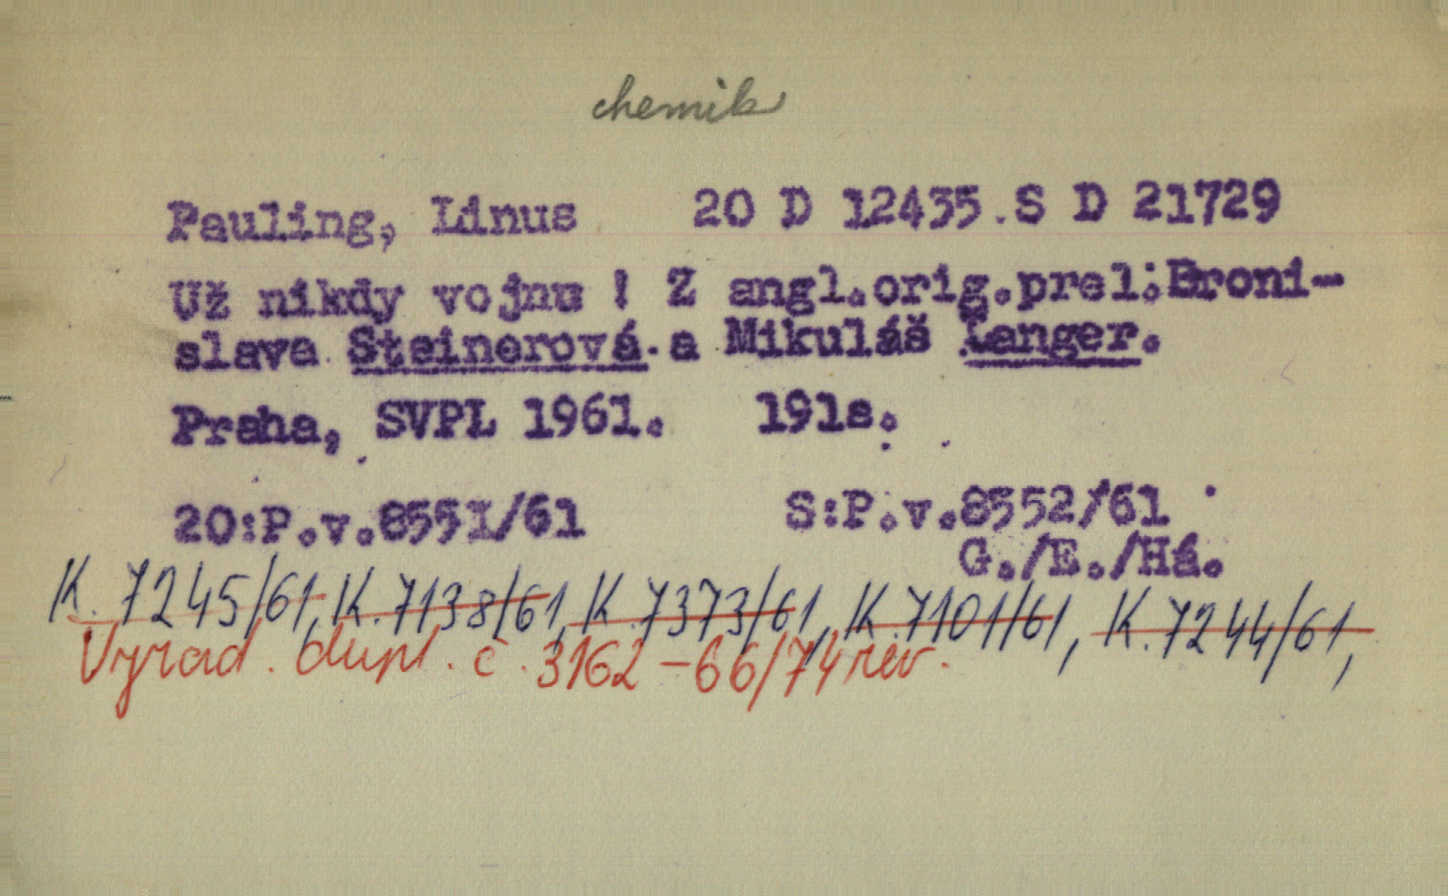 chemik
Pauling, Linus 20 D 12435 S D 21729
Už nikdy vojnu ! Z angl.orig.prel.:Broni-
slava Steinerová a Mikuláš Langer.
Praha, SVPL 1961. 191s.
20:P.v.8551/61 S:P.v.8552/61
G./E./Há.
K. 7245/61, K. 7138/61, K. 7373/61, K. 7101/61, K. 7244/61,
Vyrad. dupl. č. 3162-66/74 rev.